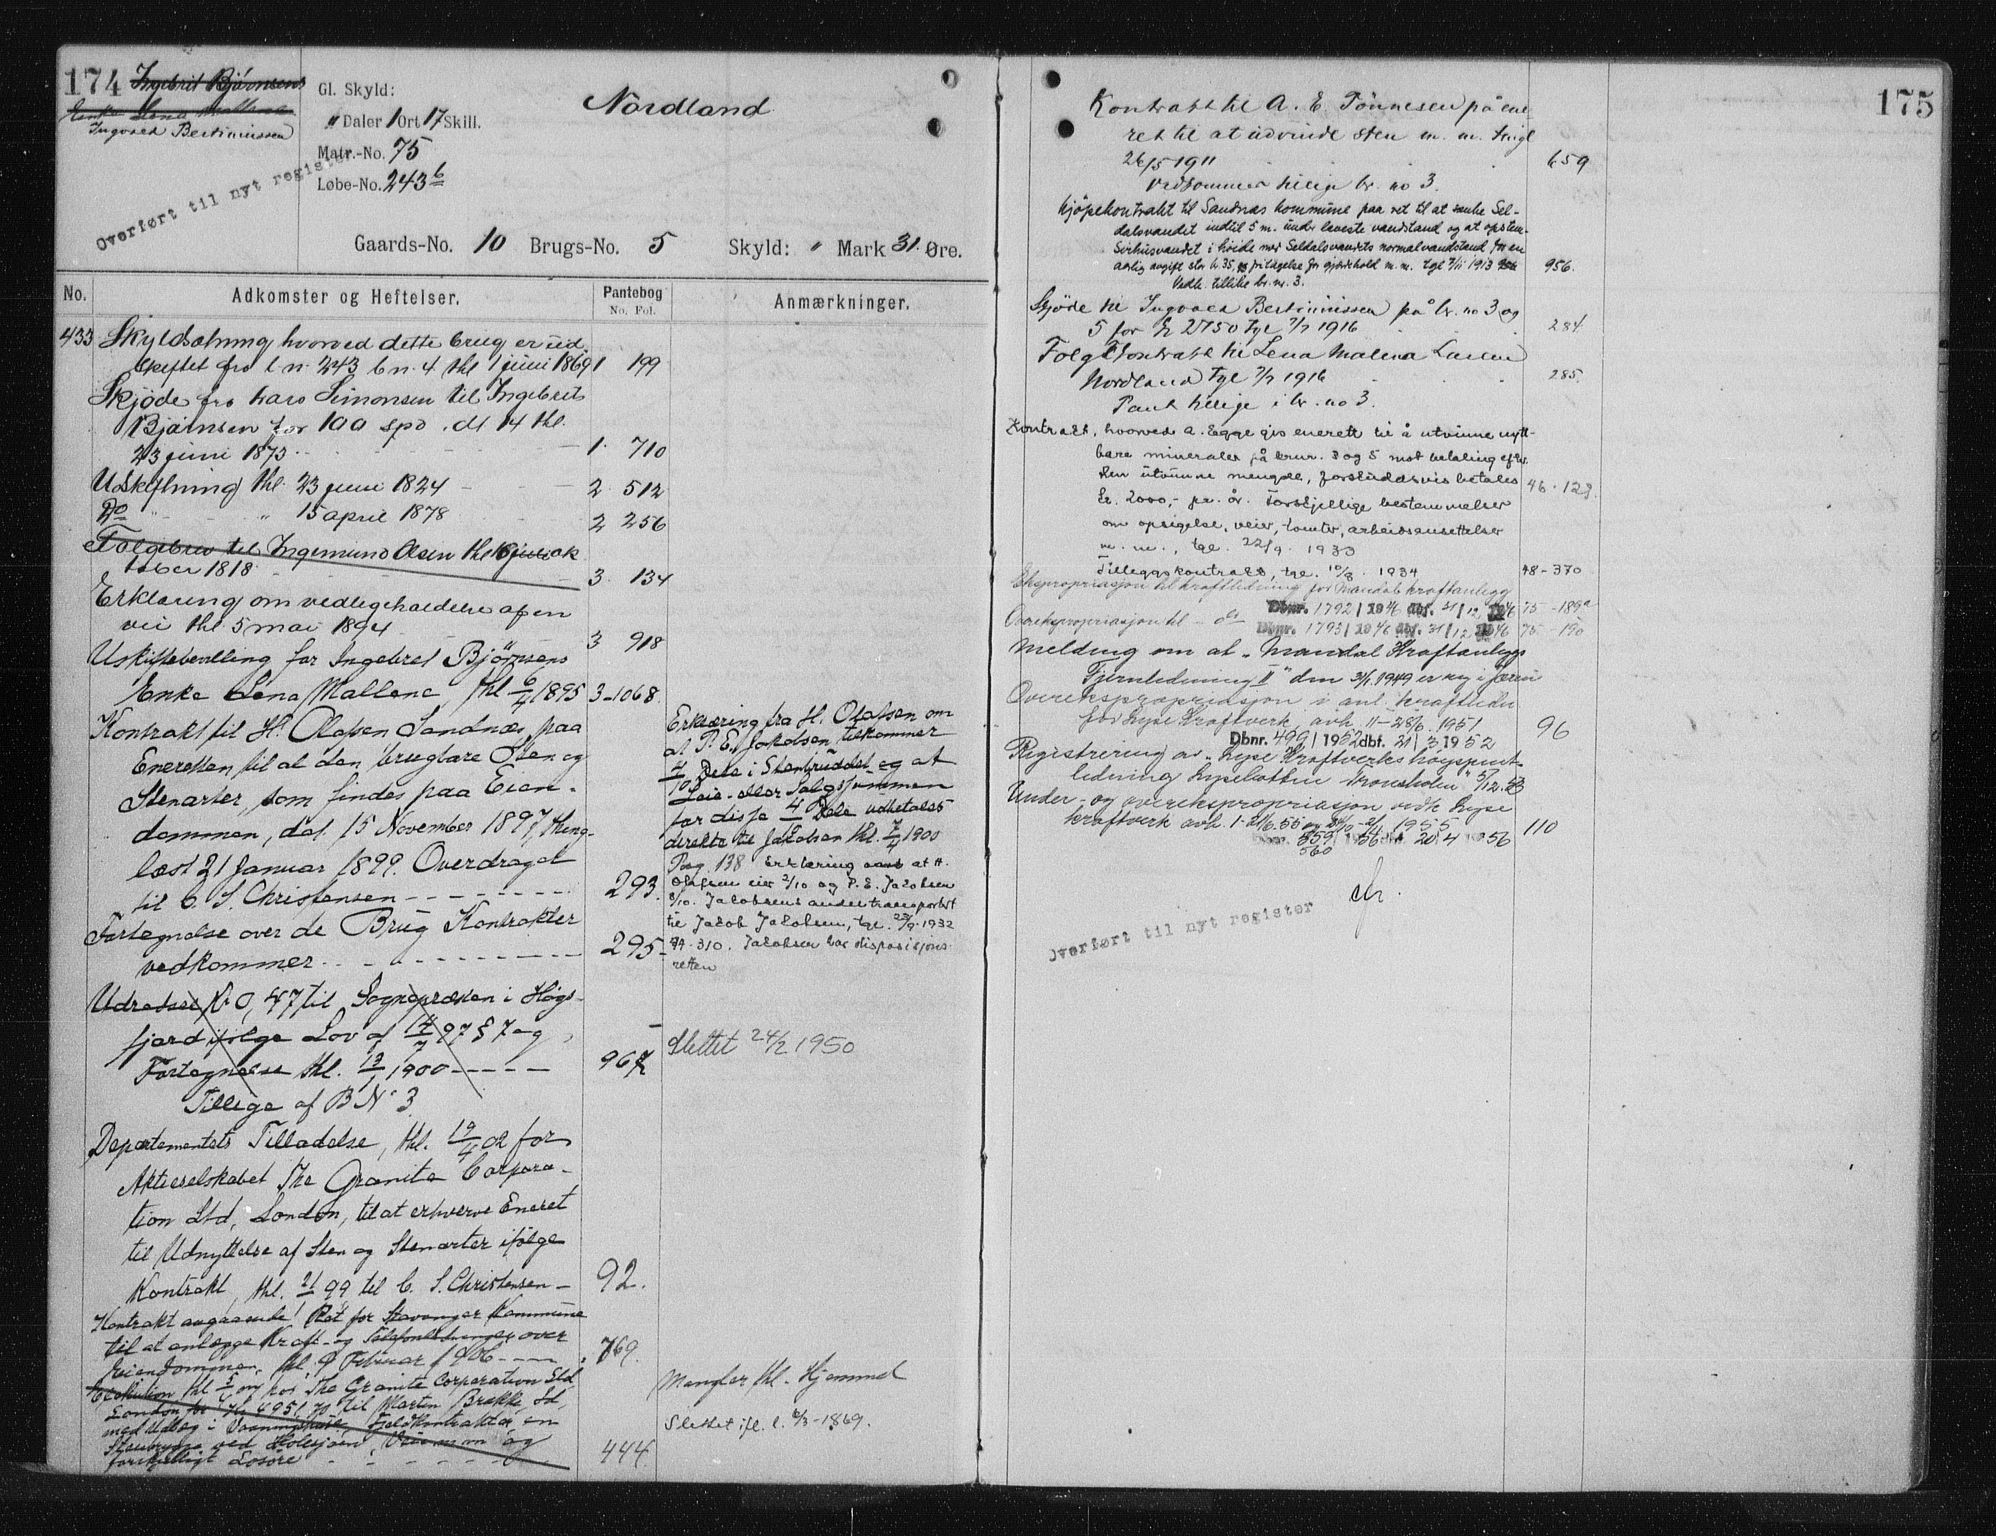 174
Ingebrit Bjørnsens
Enke Lena Mallene
Ingvald Bertinussen
Overført til nyt register
Gl. Skyld:
" Daler 1 Ort 17 Skill.
Matr.-No. 75
Løbe-No. 243 b
Nordland
Gaards-No. 10 Brugs-No. 5 Skyld: " Mark 31 Øre.
No. Adkomster og Heftelser. Pantebog No. Fol. Anmærkninger.
433 Skyldsætning hvorved dette brug er ud
skiftet fra l. n. 243 b n. 4 thl 1 juni 1869 1 199
Skjøde fra Lars Simonsen til Ingebrit
Bjørnsen for 100 spd. dt 14 thl.
23 juni 1873 1. 710
Udskiftning thl. 23 juni 1824 2. 512
Do " " 15 april 1878 2 256
Folgebrev til Ingemund Olsen thl
tober 1818 3. 134
Erklæring om vedligeholdelse af en
vei thl 5 mai 1894 3 918
Uskiftebevilling for Ingebret Bjørnsens
Enke Lena Mallene thl 6/4 1895 3-1068
Kontrakt til H. Olafsen Sandnæs paa
Eneretten til al den brugbare Sten og
Stenarter, som findes paa Eien-
dommen, dat. 15 November 1897 thing-
læst 21 Januar 1899. Overdraget
til C. S. Christensen 293.
Fortegnelse over de Brug Kontrakter
vedkommer 295
Udredsel Kr 0,47 til Sognepræsten i Høgs-
fjord ifølge Lov af 14/7 97 § 7 og
Fortegnelse thl. 12/1 1900 967
Tillige af B No 3
Departementets Tilladelse, thl. 19/4 02 for
Aktieselskabet The Granite Corpora-
tion Ltd, London, til at erhverve Eneret
til Udnyttelse af Sten og Stenarter ifølge
Kontrakt, thl. 21/1 99 til C. S. Christensen 92.
Kontrakt angaaende Ret for Stavanger Kommune
til at anlægge Kraft- og Telefonledninger over
Eiendommen, thl. 9 Februar 1906 769.
Exekution thl 5/4 09 hos The Granite Corporation Ltd
London for Kr 4951,70 til Martin Brakke, Sd,
med Udlæg i Vaaningshuse, Fjeldkontrakter, en
Stenbrygge ved Holesjøen, Vei m m og
forskjelligt Løsøre 444.
Erklæring fra H. Olafsen om
at P. E. Jakobsen tilkommer
4/10 Dele i Stenbruddet og at
Leie- eller Salgssummen
for disse 4/10 Dele udbetales
direkte til Jakobsen thl. 7/4 1900
Pag 138 Erklæring at H.
Olafsen eier 2/10 og P. E. Jacobsen
8/10. Jacobsens andel transportert
til Jakob Jacobsen, tgl. 23/9 1932
44-310. Jacobsen har disposisjons-
retten
Slettet 24/2 1950
Mangler thl. Hjemmel
Slettet ifl. l. 6/3-1869.
175
Kontrakt til A. E. Tønnesen på ene
ret til at udvinde sten m. m. tingl
26/5 1911 659
Vedkommer tillige br. no 3.
Kjöpekontrakt til Sandnæs kommune paa ret til at sænke Sel-
dalsvandet indtil 5 m. under laveste vandstand og at opstem-
Svihusvandet i höide med Seldalsvandets normalvandstand for en
aarlig avgift stor kr. 35, og fritagelse for gjærdehold m. m. tgl 7/11 1913 956.
Vedk. tillike br. nr. 3.
Skjöde til Ingvald Bertinussen på br. no 3 og
5 for kr 2750 tgl 7/7 1916 284.
Folgekontrakt til Lena Malena Larsen
Nordland tgl 7/7 1916 285.
Pant tillige i br. no 3.
Kontrakt, hvorved A. Egge gis enerett til å utvinne nytt-
bare mineraler på brnr. 3 og 5 mot betaling efter
den utvunne mengde, forskuddsvis betales 46-123.
kr. 2000,- pr. år. Forskjellige bestemmelser
om opsigelse, veier, tomter, arbeidsansettelser
m. m., tgl. 22/9 1933
Tilleggskontrakt, tgl. 10/8 1934 48-370
Ekspropriasjon til kraftledning for Mandal kraftanlegg
Dbnr. 1792 / 1946 dbf. 31/12 1946 75-189a
Overekspropriasjon til - do - Dbnr. 1793 / 1946 dbf. 31/12 1946 75-190
Melding om at „Mandal Kraftanleggs
Fjernledning II" den 3/1 1949 er reg i
Overekspropriasjon i anl. kraftledn
for Lyse Kraftverk, avh. 11-28/6 1951 96
Dbnr. 499 / 1952 dbf. 31/3 1952
Registrering av „Lyse Kraftverks høyspent-
ledning Lysebotten Tronsholen" 5/12.53
Under- og overekspropriasjon vedk Lyse
kraftverk avh. 1-21/6.55 og 24/10-2/11 1955 110
Dbnr. 559 560 / 1956 dbf. 20/4 1956
Overført til nyt register